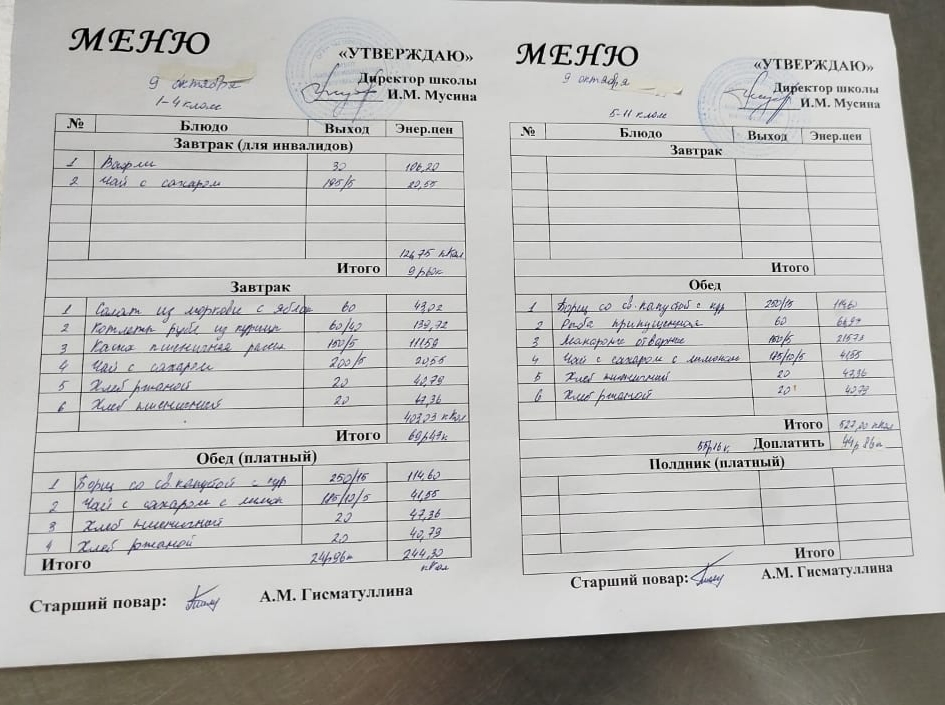 МЕНЮ
9 октября
1-4 класс
«УТВЕРЖДАЮ»
Директор школы
И.М. Мусина
№ Блюдо Выход Энер.цен
Завтрак (для инвалидов)
1 Вафли 30 106,20
2 Чай с сахаром 195/5 20,55
126,75 кКал
Итого 9р60к
Завтрак
1 Салат из моркови с яблок 60 43,02
2 Котлеты рубл из курицы 60/40 139,72
3 Каша пшеничная рассып 150/5 111,59
4 Чай с сахаром 200/5 20,55
5 Хлеб ржаной 20 40,79
6 Хлеб пшеничный 20 47,36
403,03 кКал
Итого 69р47к
Обед (платный)
1 Борщ со св.капустой с кур 250/15 114,60
2 Чай с сахаром с лимон 185/10/5 41,55
3 Хлеб пшеничный 20 47,36
4 Хлеб ржаной 20 40,79
Итого 24р96к 244,30 кКал
Старший повар: А.М. Гисматуллина
МЕНЮ
9 октября
5-11 класс
«УТВЕРЖДАЮ»
Директор школы
И.М. Мусина
№ Блюдо Выход Энер.цен
Завтрак
Итого
Обед
1 Борщ со св.капустой с кур 250/15 114,60
2 Рыба припущенная 60
3 Макароны отварные 150/5
4 Чай с сахаром с лимоном 185/10/5 41,55
5 Хлеб пшеничный 20 47,36
6 Хлеб ржаной 20 40,79
Итого кКал
55р16к Доплатить 44р 86к
Полдник (платный)
Итого
Старший повар: А.М. Гисматуллина